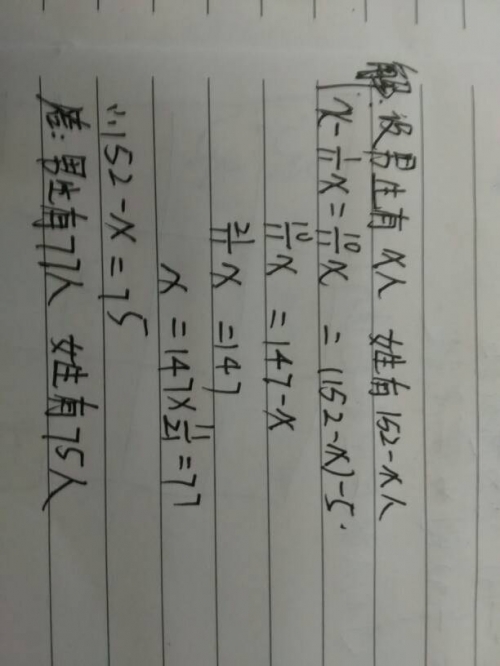 解.设男生有x人 女生有152-x人
x-1/11x=10/11x =(152-x)-5.
10/11x =147-x
21/11x =147
x =147×11/21=77
∴152-x=75
答:男生有77人 女生有75人